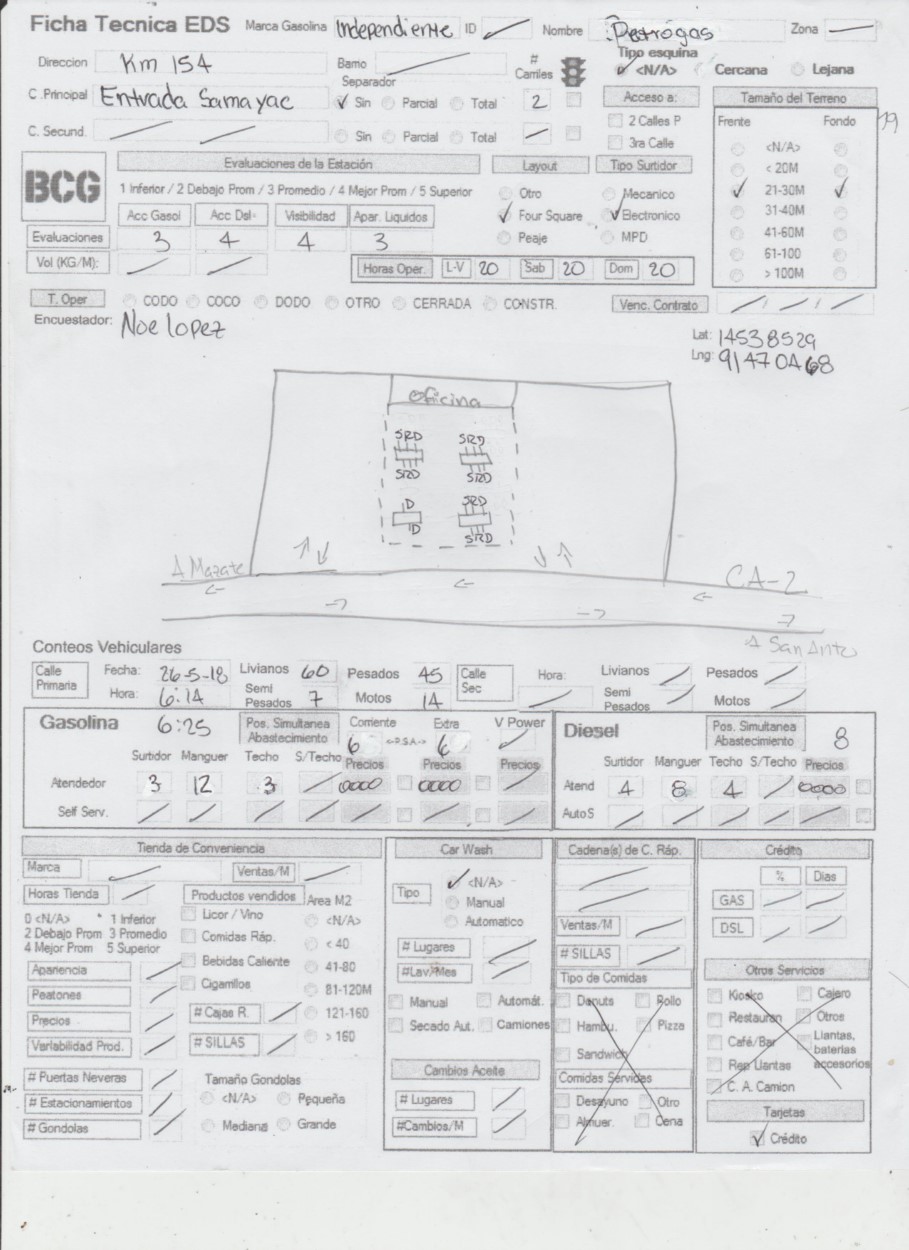 Ficha Tecnica EDS Marca Gasolina Independiente ID Nombre Petrogas Zona
Direccion Km 154 Barrio # Carriles Tipo esquina <N/A> Cercana Lejana
Separador
C.Principal Entrada Samayac Sin Parcial Total 2 Acceso a: Tamaño del Terreno 19
C. Secund. Sin Parcial Total 2 Calles P Frente Fondo
3ra Calle <N/A>
BCG Evaluaciones de la Estación Layout Tipo Surtidor < 20M
1 Inferior / 2 Debajo Prom / 3 Promedio / 4 Mejor Prom / 5 Superior Otro Mecanico 21-30M
Acc Gasol Acc Dsl Visibilidad Apar. Liquidos Four Square Electronico 31-40M
Evaluaciones 3 4 4 3 Peaje MPD 41-60M
61-100
Vol (KG/M): Horas Oper. L-V 20 Sab 20 Dom 20 > 100M
T. Oper CODO COCO DODO OTRO CERRADA CONSTR. Venc. Contrato
Encuestador: Noe lopez
Lat: 14538529
Lng: 91470468
Oficina
SRD SRD
SRD SRD
D SRD
D SRD
A Mazate CA-2
A San Anto
Conteos Vehiculares
Calle Primaria Fecha: 26-5-18 Livianos 60 Pesados 45 Calle Sec Hora: Livianos Pesados
Hora: 6:14 Semi Pesados 7 Motos 14 Semi Pesados Motos
Gasolina 6:25 Pos. Simultanea Abastecimiento Corriente 6 <-D.S.A-> Extra 6 V Power Diesel Pos. Simultanea Abastecimiento 8
Surtidor Manguer Techo S/Techo Precios Precios Precios Surtidor Manguer Techo S/Techo Precios
Atendedor 3 12 3 0000 0000 Atend 4 8 4 0000
Self Serv. Auto S
Tienda de Conveniencia Car Wash Cadena(s) de C. Ráp. Crédito
Marca Ventas/M <N/A> % Dias
Horas Tienda Productos vendidos Area M2 Tipo Manual GAS
0 <N/A> * 1 Inferior Licor / Vino <N/A> Automatico Ventas/M DSL
2 Debajo Prom 3 Promedio Comidas Ráp. < 40 # Lugares # SILLAS
4 Mejor Prom 5 Superior Bebidas Caliente 41-80 #Lav/Mes Tipo de Comidas Otros Servicios
Apariencia Cigarrillos 81-120M Manual Automát. Donuts Pollo Kiosko Cajero
Peatones # Cajas R. 121-160 Secado Aut. Camiones Hambu. Pizza Restauran Otros
Precios # SILLAS > 160 Sandwich Café/Bar Llantas, baterias accesorios
Variabilidad Prod. Cambios Aceite Comidas Servidas Rep Llantas
# Puertas Neveras Tamaño Gondolas # Lugares Desayuno Otro C. A. Camion
# Estacionamientos <N/A> Pequeña #Cambios/M Almuer. Cena Tarjetas
# Gondolas Mediana Grande Crédito